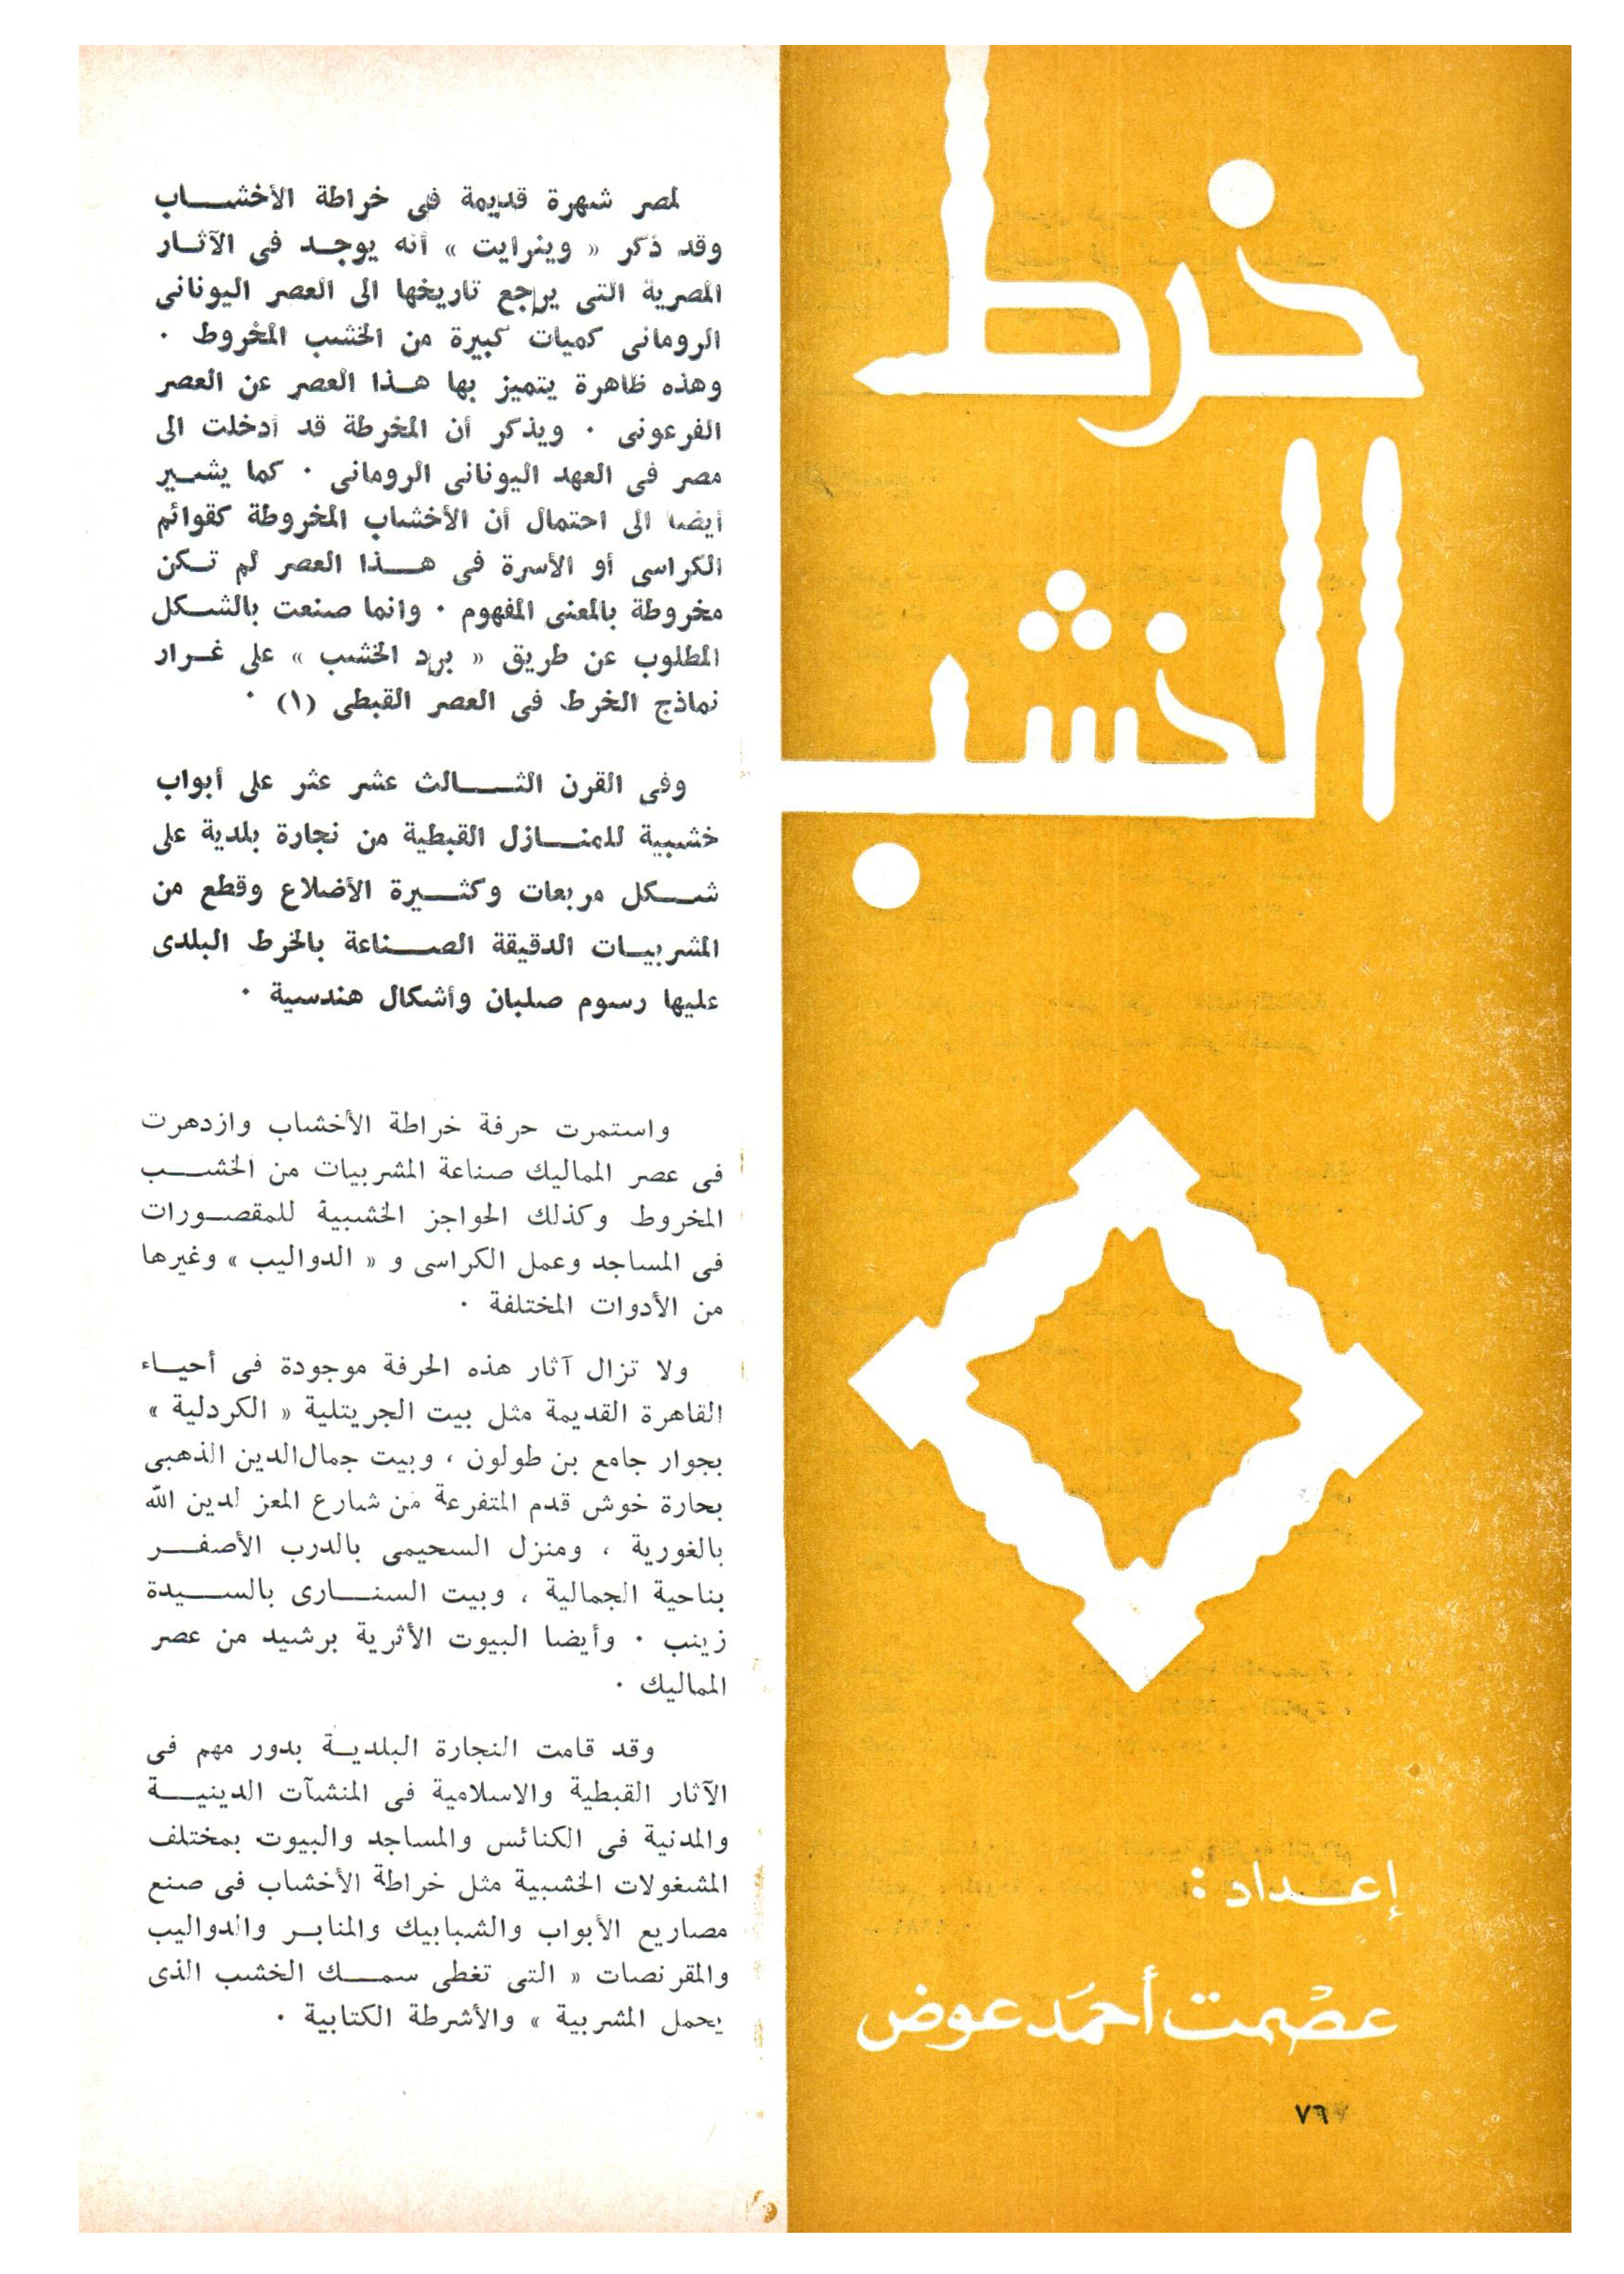 خرط
الخشب
إعداد :
عصمت أحمد عوض
لمصر شهرة قديمة فى خراطة الأخشاب
وقد ذكر « وينرايت » أنه يوجد فى الآثار
المصرية التى يراجع تاريخها الى العصر اليونانى
الرومانى كميات كبيرة من الخشب المخروط ٠
وهذه ظاهرة يتميز بها هذا العصر عن العصر
الفرعونى ٠ ويذكر أن المخرطة قد أدخلت الى
مصر فى العهد اليونانى الرومانى ٠ كما يشير
أيضا الى احتمال أن الأخشاب المخروطة كقوائم
الكراسى أو الأسرة فى هذا العصر لم تكن
مخروطة بالمعنى المفهوم ٠ وانما صنعت بالشكل
المطلوب عن طريق « برد الخشب » على غرار
نماذج الخرط فى العصر القبطى (١) ٠
وفى القرن الثالث عشر عثر على أبواب
خشبية للمنازل القبطية من نجارة بلدية على
شكل مربعات وكثيرة الأضلاع وقطع من
المشربيات الدقيقة الصناعة بالخرط البلدى
عليها رسوم صلبان وأشكال هندسية ٠
واستمرت حرفة خراطة الأخشاب وازدهرت
فى عصر المماليك صناعة المشربيات من الخشب
المخروط وكذلك الحواجز الخشبية للمقصورات
فى المساجد وعمل الكراسى و « الدواليب » وغيرها
من الأدوات المختلفة ٠
ولا تزال آثار هذه الحرفة موجودة فى أحياء
القاهرة القديمة مثل بيت الجريتلية « الكردلية »
بجوار جامع بن طولون ، وبيت جمال الدين الذهبى
بحارة خوش قدم المتفرعة من شارع المعز لدين الله
بالغورية ، ومنزل السحيمى بالدرب الأصفر
بناحية الجمالية ، وبيت السنارى بالسيدة
زينب ٠ وأيضا البيوت الأثرية برشيد من عصر
المماليك ٠
وقد قامت النجارة البلدية بدور مهم فى
الآثار القبطية والاسلامية فى المنشآت الدينية
والمدنية فى الكنائس والمساجد والبيوت بمختلف
المشغولات الخشبية مثل خراطة الأخشاب فى صنع
مصاريع الأبواب والشبابيك والمنابر والدواليب
والمقرنصات « التى تغطى سمك الخشب الذى
يحمل المشربية » والأشرطة الكتابية ٠
٧٦